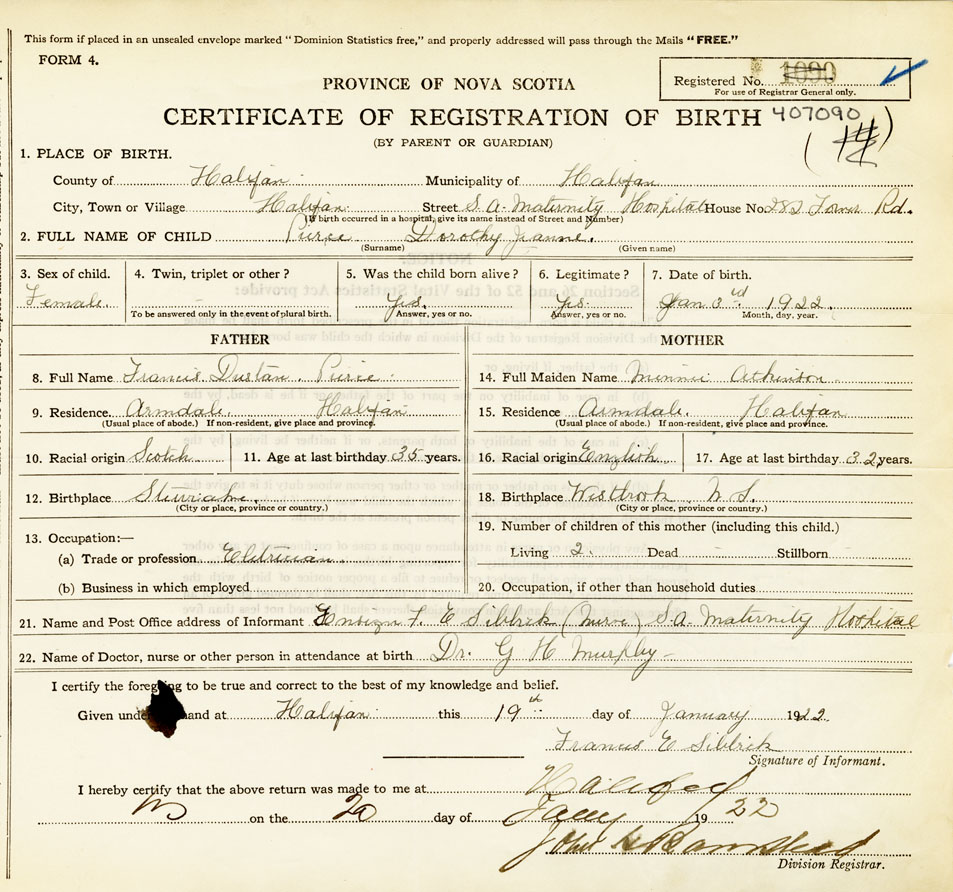 This form if placed in an unsealed envelope marked "Dominion Statistics free," and properly addressed will pass through the Mails "FREE."
FORM 4.
Registered No. 1090
For use of Registrar General only.
PROVINCE OF NOVA SCOTIA
CERTIFICATE OF REGISTRATION OF BIRTH 407090
(BY PARENT OR GUARDIAN)
1. PLACE OF BIRTH.
County of Halifax Municipality of Halifax
City, Town or Village Halifax Street S.A. Maternity Hospital House No. 282 Tower Rd.
(If birth occurred in a hospital, give its name instead of Street and Number)
2. FULL NAME OF CHILD Pierce Dorothy Jeanne.
(Surname) (Given name)
3. Sex of child. 4. Twin, triplet or other? 5. Was the child born alive? 6. Legitimate? 7. Date of birth.
Female. Yes. Yes. Jan 3rd 1922
To be answered only in the event of plural birth. Answer, yes or no. Answer, yes or no. Month, day, year.
FATHER MOTHER
8. Full Name Francis Dustan Pierce 14. Full Maiden Name Minnie Atkinson
9. Residence. Armdale. Halifax 15. Residence Armdale. Halifax
(Usual place of abode.) If non-resident, give place and province. (Usual place of abode.) If non-resident, give place and province.
10. Racial origin Scotch 11. Age at last birthday 35 years. 16. Racial origin English. 17. Age at last birthday 32 years.
12. Birthplace 18. Birthplace Westbrook N.S.
(City or place, province or country.) (City or place, province or country.)
13. Occupation:— 19. Number of children of this mother (including this child.)
(a) Trade or profession Eletrician. Living 2. Dead Stillborn
(b) Business in which employed 20. Occupation, if other than household duties
21. Name and Post Office address of Informant Ensign F. E Siblrik (Nurse) S.A. Maternity Hospital
22. Name of Doctor, nurse or other person in attendance at birth Dr. G H Murphy
I certify the foregoing to be true and correct to the best of my knowledge and belief.
Given under hand at Halifax this 19th day of January 1922
Frances E Siblrik
Signature of Informant.
I hereby certify that the above return was made to me at Halifax
on the 20 day of Jany 1922
John
Division Registrar.